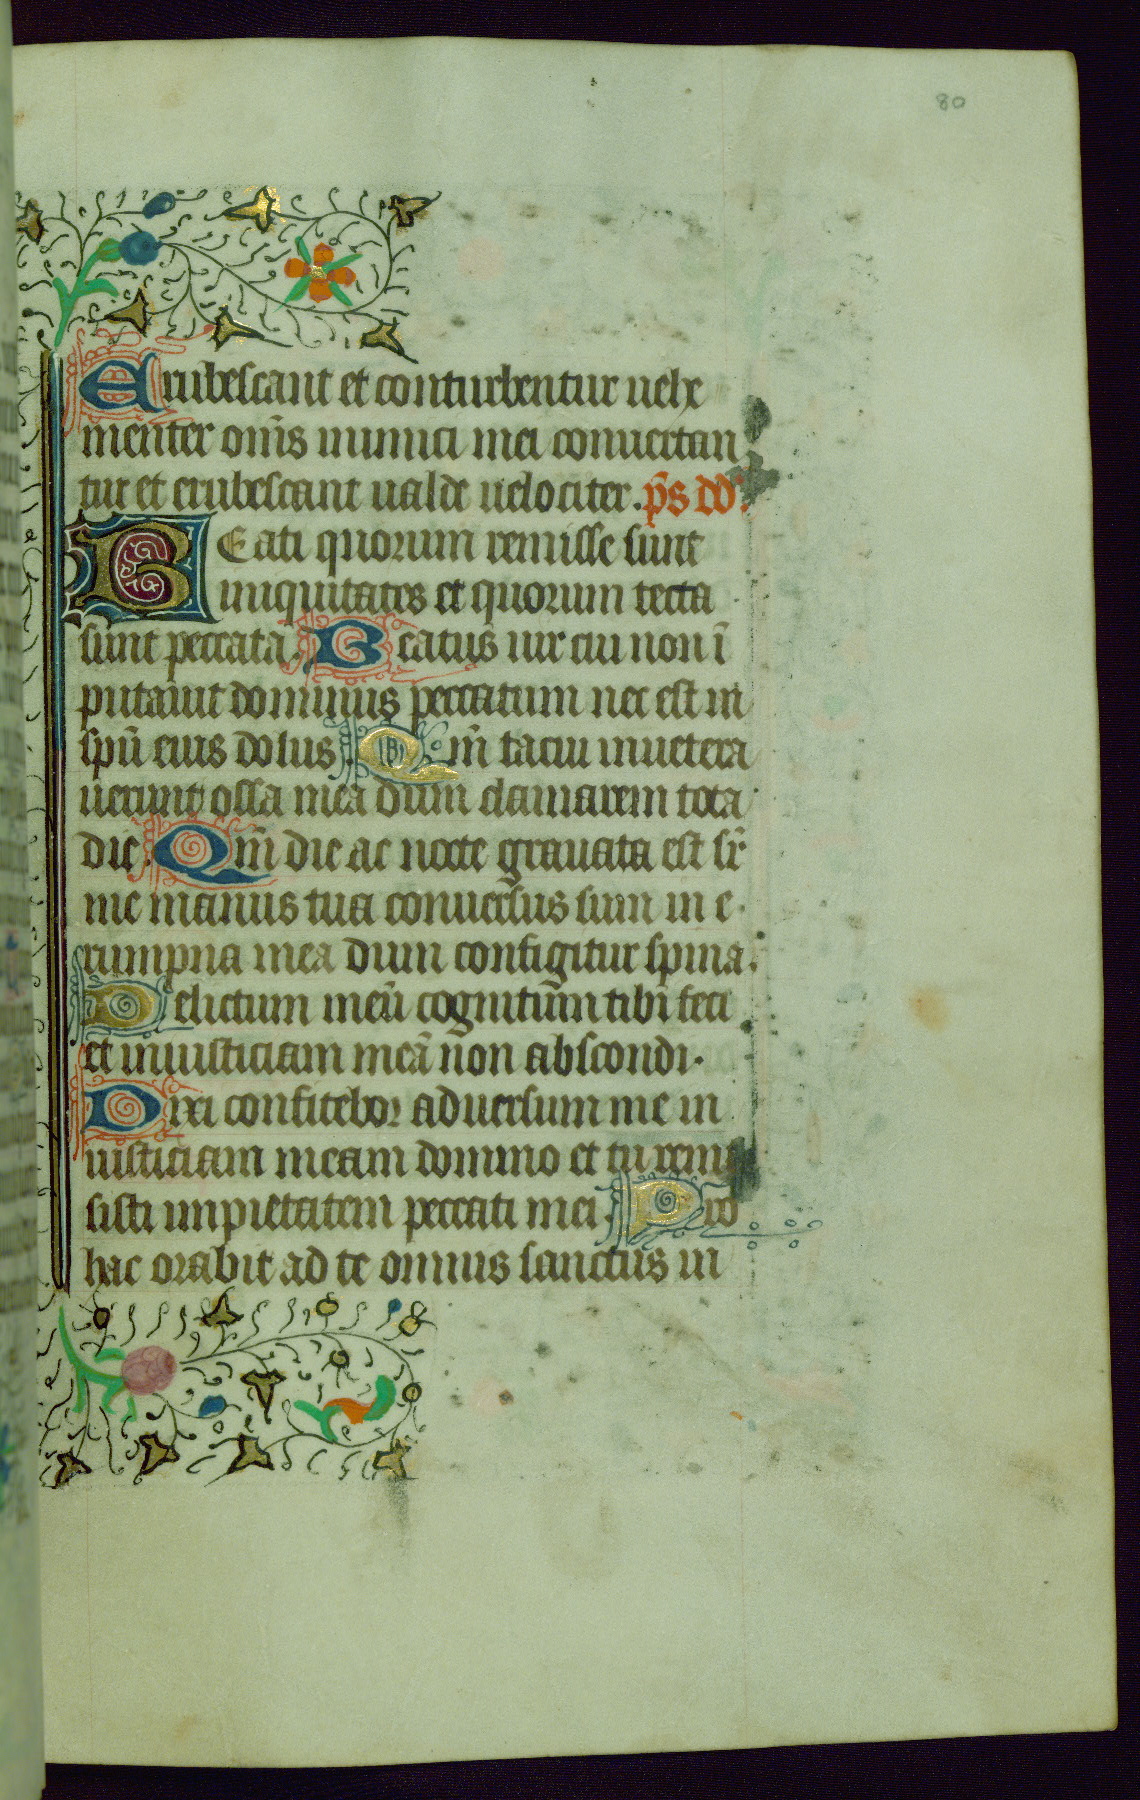 80
Erubescant et conturbentur uehe
menter om̄s inimici mei conuertan
tur et erubescant ualde uelociter. ps̄ dd.
Beati quorum remisse sunt
iniquitates et quorum tecta
sunt peccata. Beatus uir cui non ī
putauit dominus peccatum nec est in
spū eius dolus. Qm̄ tacui inuetera
uerunt ossa mea dum clamarem tota
die. Qm̄ die ac nocte grauata est sr̄
me manus tua conuersus sum in e
rumpna mea dum configitur spina.
Delictum meū cognitūm tibi feci
et iniusticiam meā non abscondi.
Dixi confitebor aduersum me in
iusticiam meam domino et tu remi
sisti impietatem peccati mei. Pro
hac orabit ad te omnis sanctus in